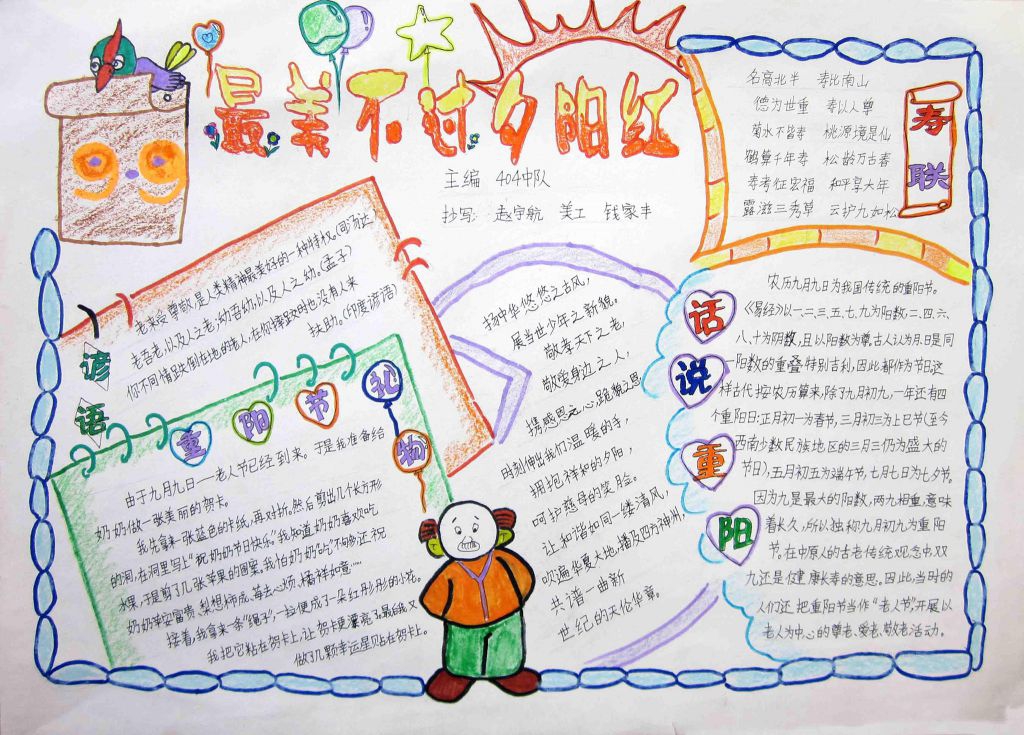 最美不过夕阳红
主编 404中队
抄写: 赵宇航 美工 钱家丰
99
寿联
名高北斗 寿比南山
德为世重 寿以人尊
菊水不皆寿 桃源境是仙
鹤算千年寿 松龄万古春
寿考征宏福 和平享大年
露滋三秀草 云护九如松
谚语
老来受尊敬,是人类精神最美好的一种特权。(司汤达)
老吾老,以及人之老;幼吾幼,以及人之幼。(孟子)
你不同情跌倒在地的老人,在你摔跤时也没有人来
扶助。(印度谚语)
重阳节礼物
由于九月九日——老人节已经到来。于是我准备给
奶奶做一张美丽的贺卡。
我先拿来一张蓝色的卡纸,再对折。然后剪出几个长方形
的洞,在洞里写上“祝奶奶节日快乐”。我知道奶奶喜欢吃
水果,于是剪了几张苹果的图案。我怕奶奶吃“不够”还祝
奶奶
接着,我拿来一条“绳子”,一拉便成了一朵红彤彤的小花。
我把它粘在贺卡上,让贺卡更漂亮了。最后我又
做了几颗幸运星贴在贺卡上。
扬中华悠悠之古风,
展当世少年之新貌。
敬孝天下之老,
敬爱身边之人,
携感恩之心,跪貌之恩
时刻伸出我们温暖的手,
拥抱祥和的夕阳,
呵护慈母的笑脸。
让和谐如同一缕清风,
吹遍华夏大地,播及四方神州,
共谱一曲新
世纪的天伦华章。
话说重阳
农历九月九日为我国传统的重阳节。
《易经》以一、三、五、七、九为阳数,二、四、六、
八、十为阴数,且以阳数为尊,古人认为月日是同
一阳数的重叠特别吉利,因此都作为节日,这
样古代按农历算来,除了九月初九,一年还有四
个重阳日:正月初一为春节,三月初三为上巳节(至今
西南少数民族地区的三月三仍为盛大的
节日),五月初五为端午节,七月七日为七夕节。
因为九是最大的阳数,两九相重,意味
着长久,所以独称九月初九为重阳
节。在中原人的古老传统观念中,双
九还是健康长寿的意思。因此,当时的
人们还把重阳节当作“老人节”,开展以
老人为中心的尊老、爱老、敬老活动。